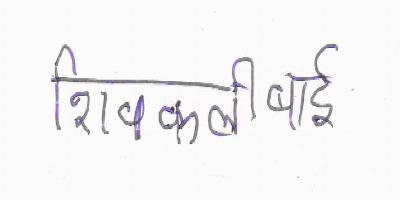 शिवकली बाई